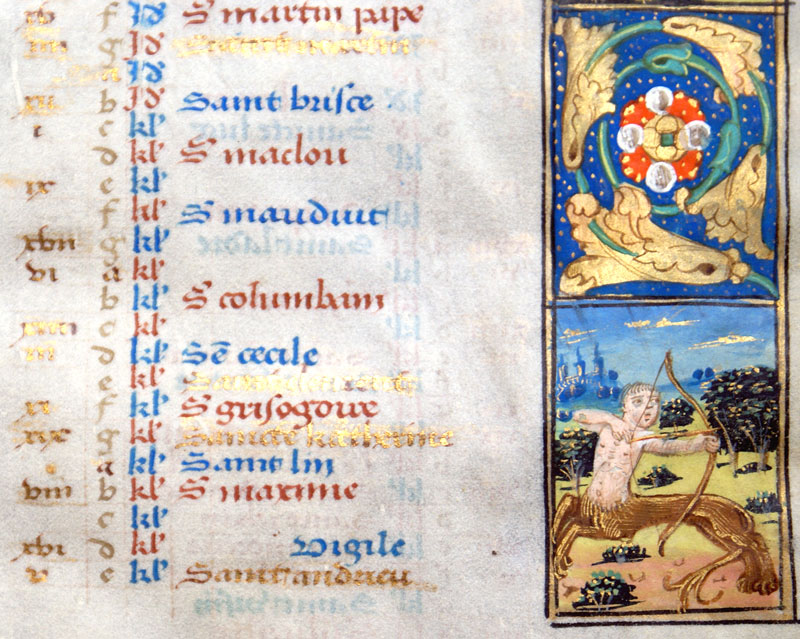 f Id S martin pape
g Id
Id
b Id Saint brisce
i c kl
d kl S maclou
ix e kl
f kl S mauduit
xvii g kl
vi a kl
b kl S columbain
c kl
d kl Sē cecile
e kl
xi f kl S grisogone
xix g kl Saincte katherine
a kl Saint lin
viii b kl S maxime
c kl
xvi d kl Vigile
v e kl Saint andrieu